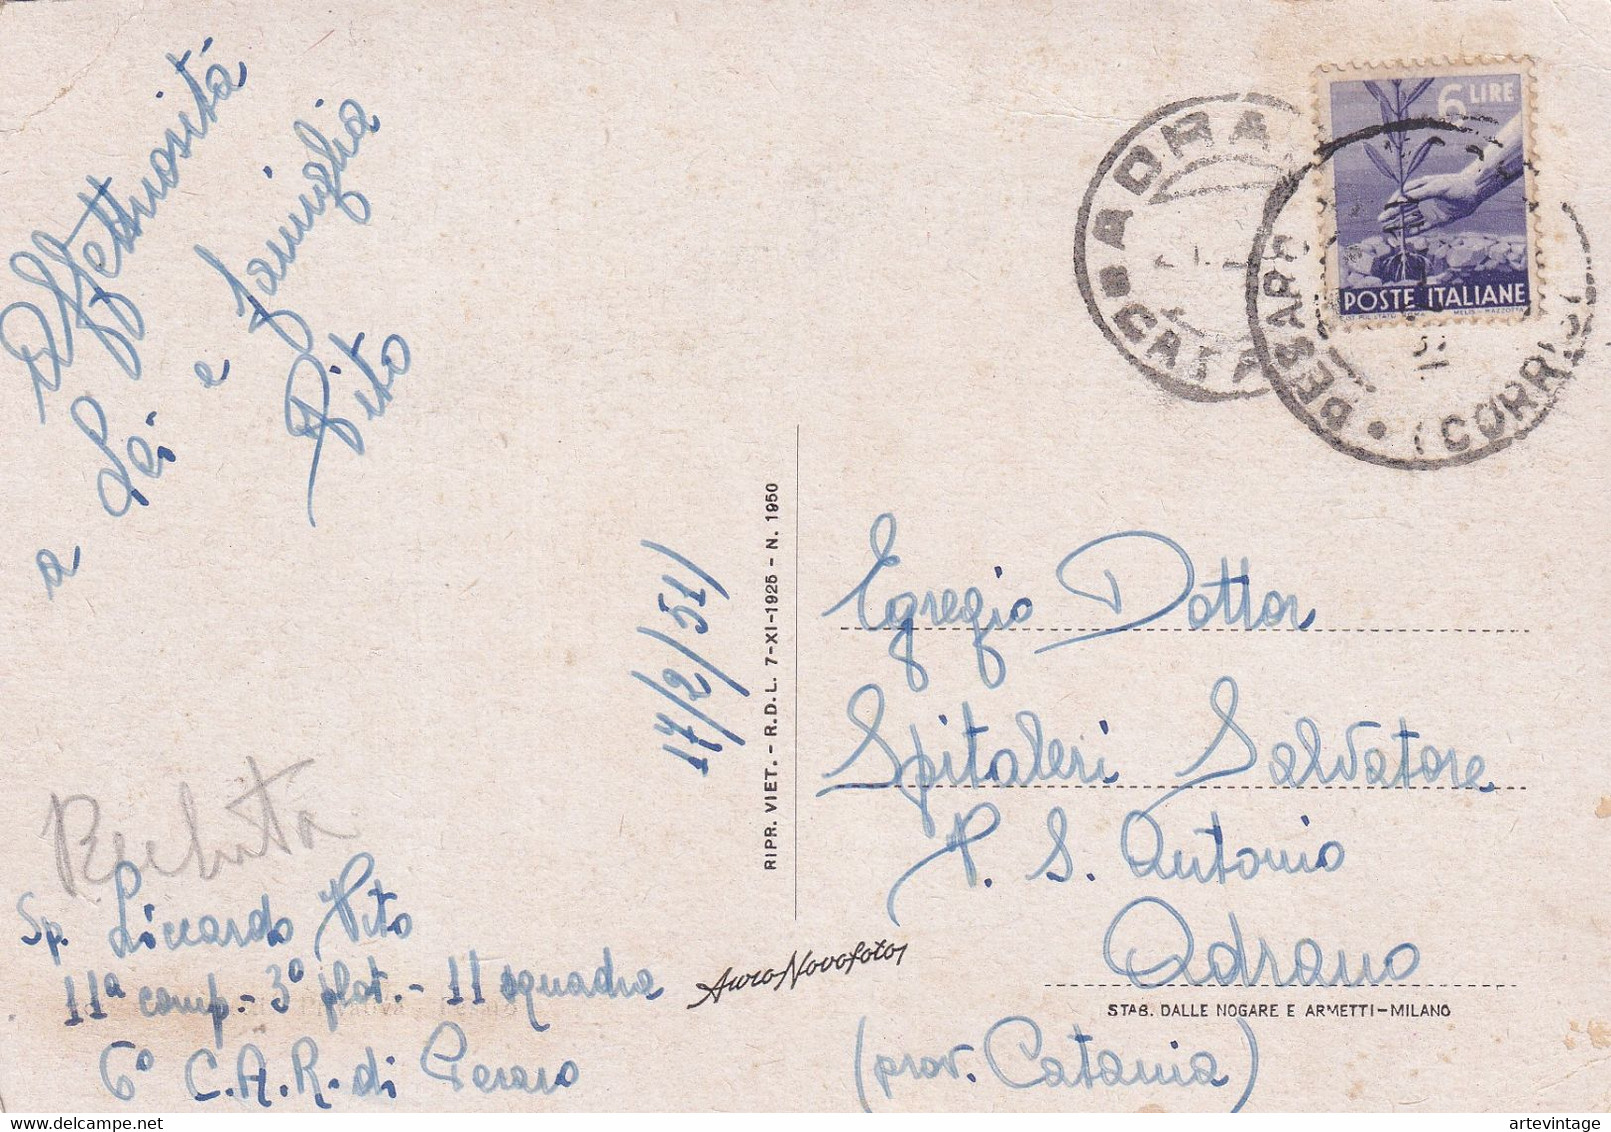 Affettuosità
a Lei e famiglia
Vito
17/2/51
Sp. Liccardo Vito
11ª comp.- 3º plot.- 11 squadra
6º C.A.R. di Pesaro
RIPR. VIET. - R.D.L. 7-XI-1925 - N. 1950
Auro Novofoto
6 LIRE
POSTE ITALIANE
ADRA
CATA
PESARO
(CORR.
Egregio Dottor
Spitaleri Salvatore
P. S. Antonio
Adrano
STAB. DALLE NOGARE E ARMETTI-MILANO
(prov. Catania)
artevintage